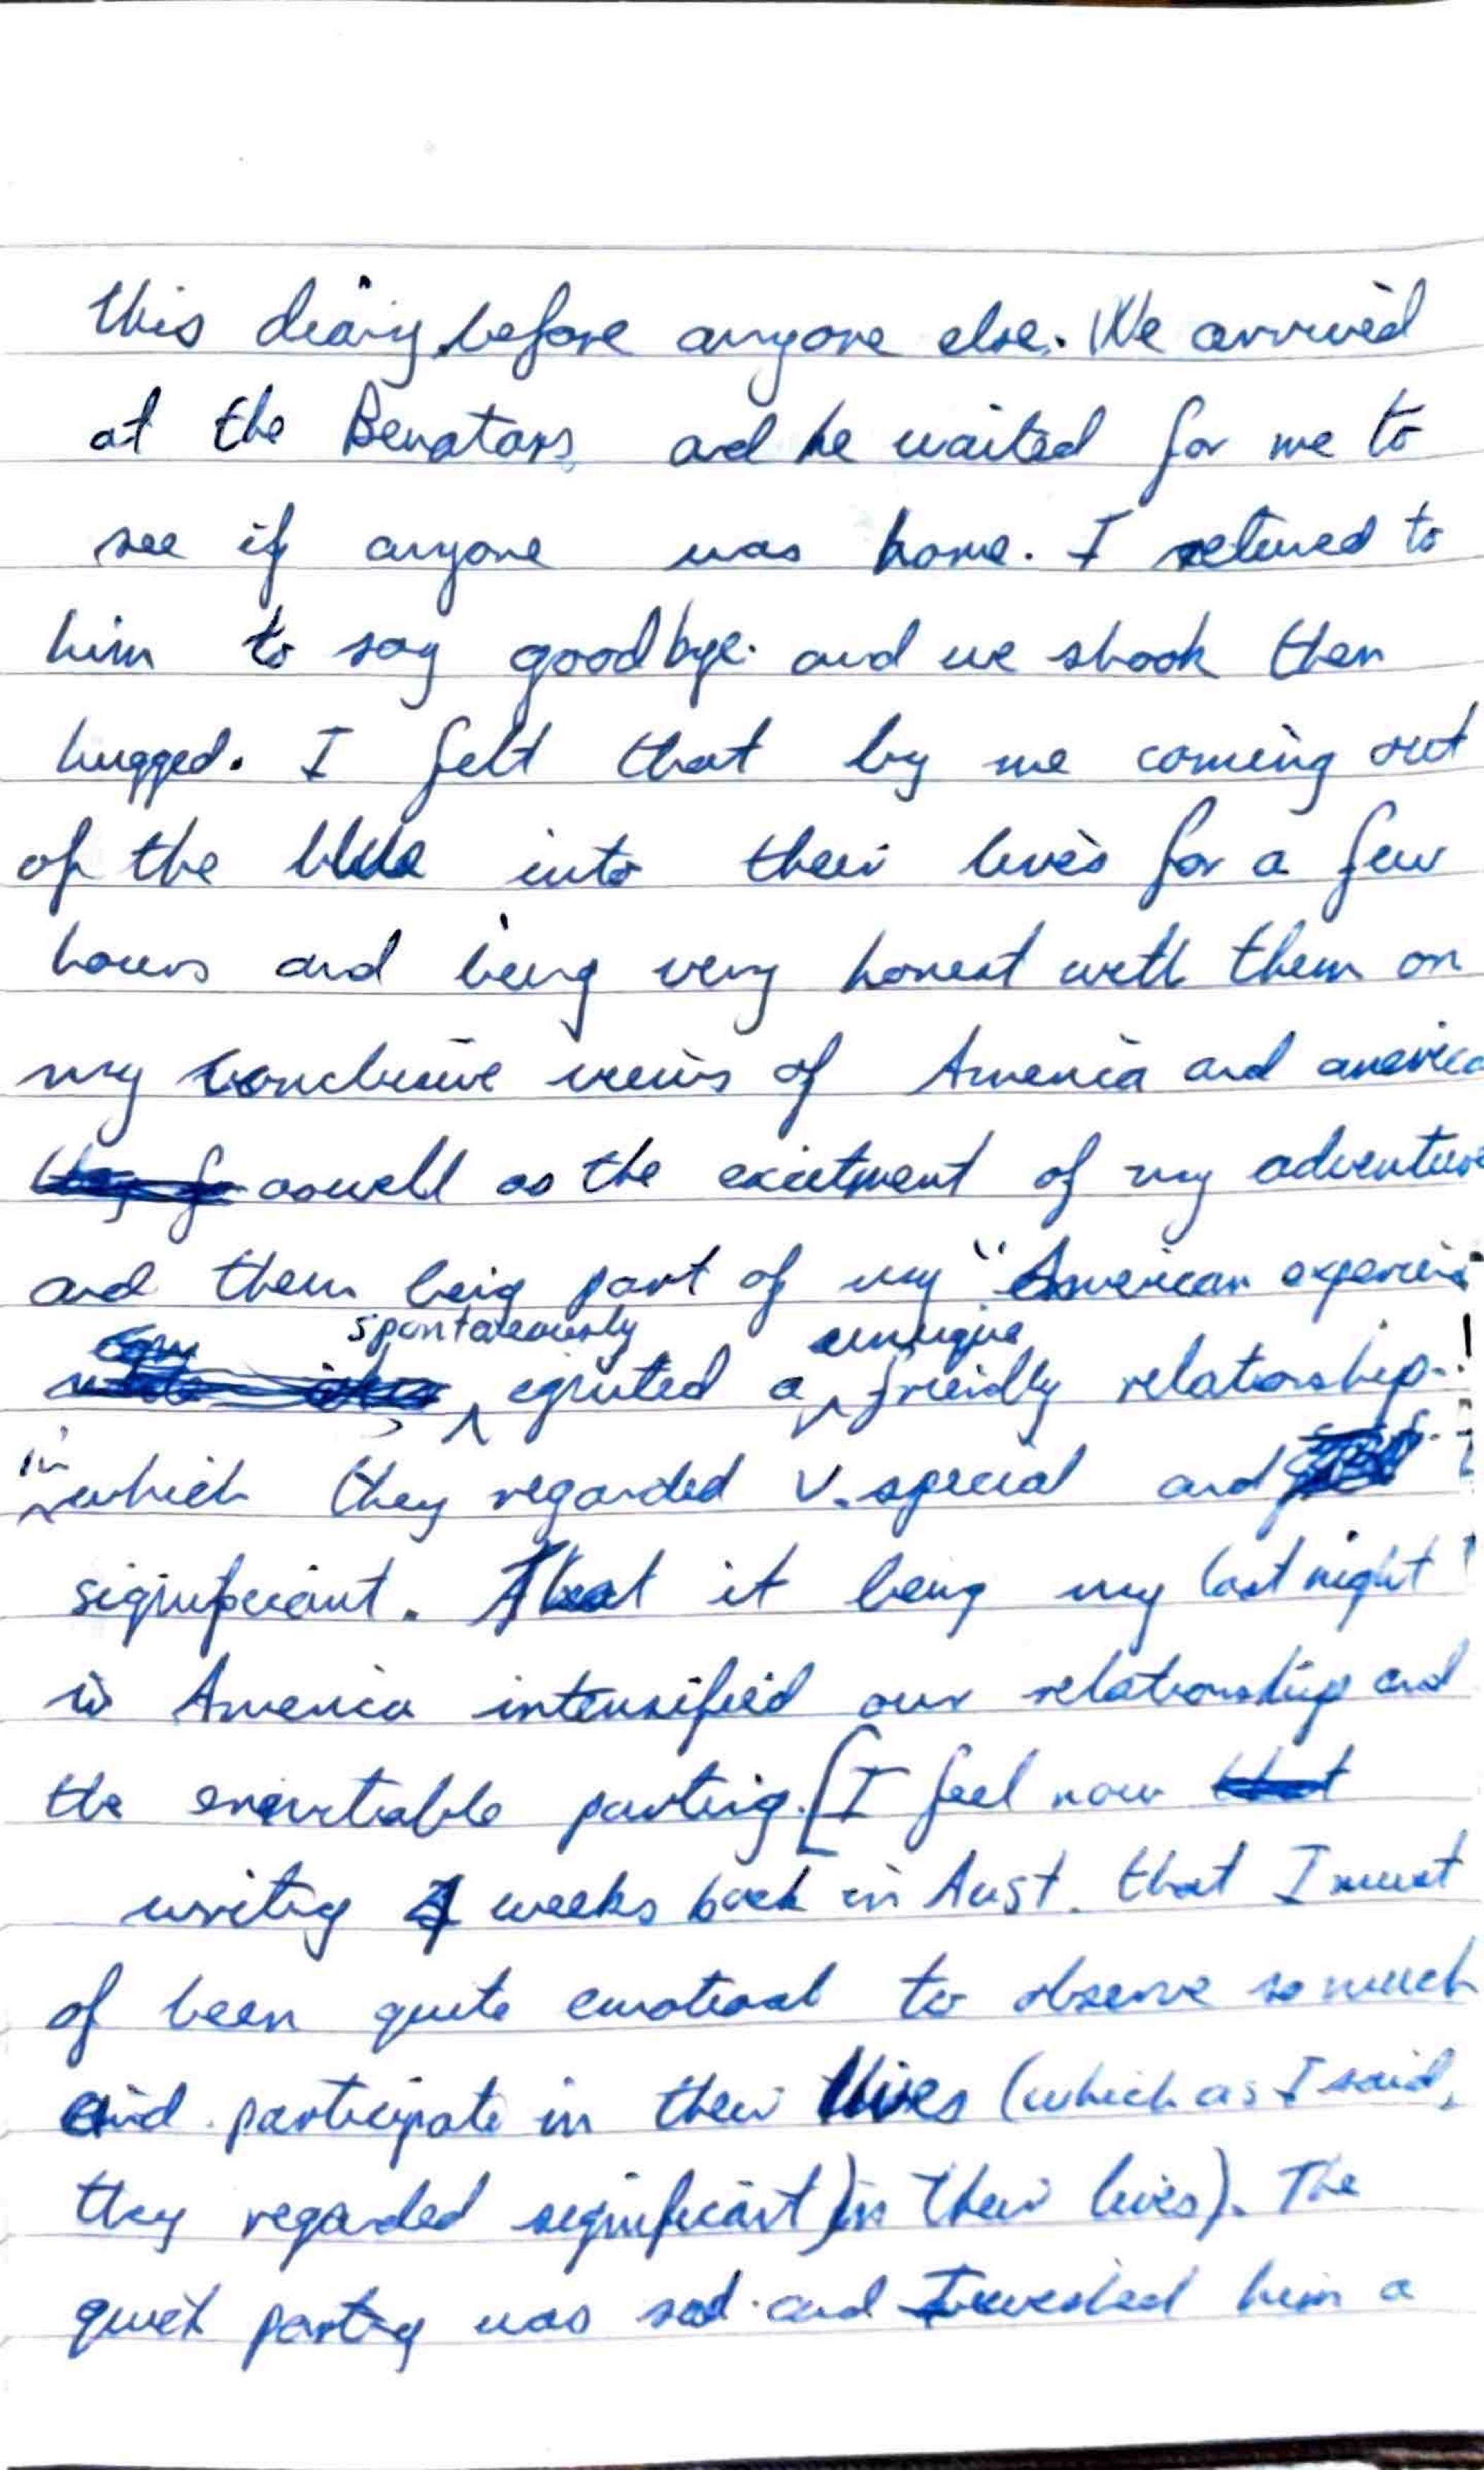 this diary before anyone else. We arrived
at the Benatars and he waited for me to
see if anyone was home. I returned to
him to say goodbye. and we shook then
hugged. I felt that by me coming out
of the blue into their lives for a few
hours and being very honest with them on
my conclusive views of America and america
aswell as the excitment of my adventure
and them being part of my "American experien
spontaneously unique
ignited a friendly relationship.!
in
which they regarded v. special and
significant. That it being my last night
in America intensified our relationship and
the inevitable parting. [I feel now that
writing 4 weeks back in Aust. that I must
of been quite emotional to observe so much
and participate in their lives (which as I said,
they regarded significant) in their lives). The
quiet parting was sad. and I wished him a